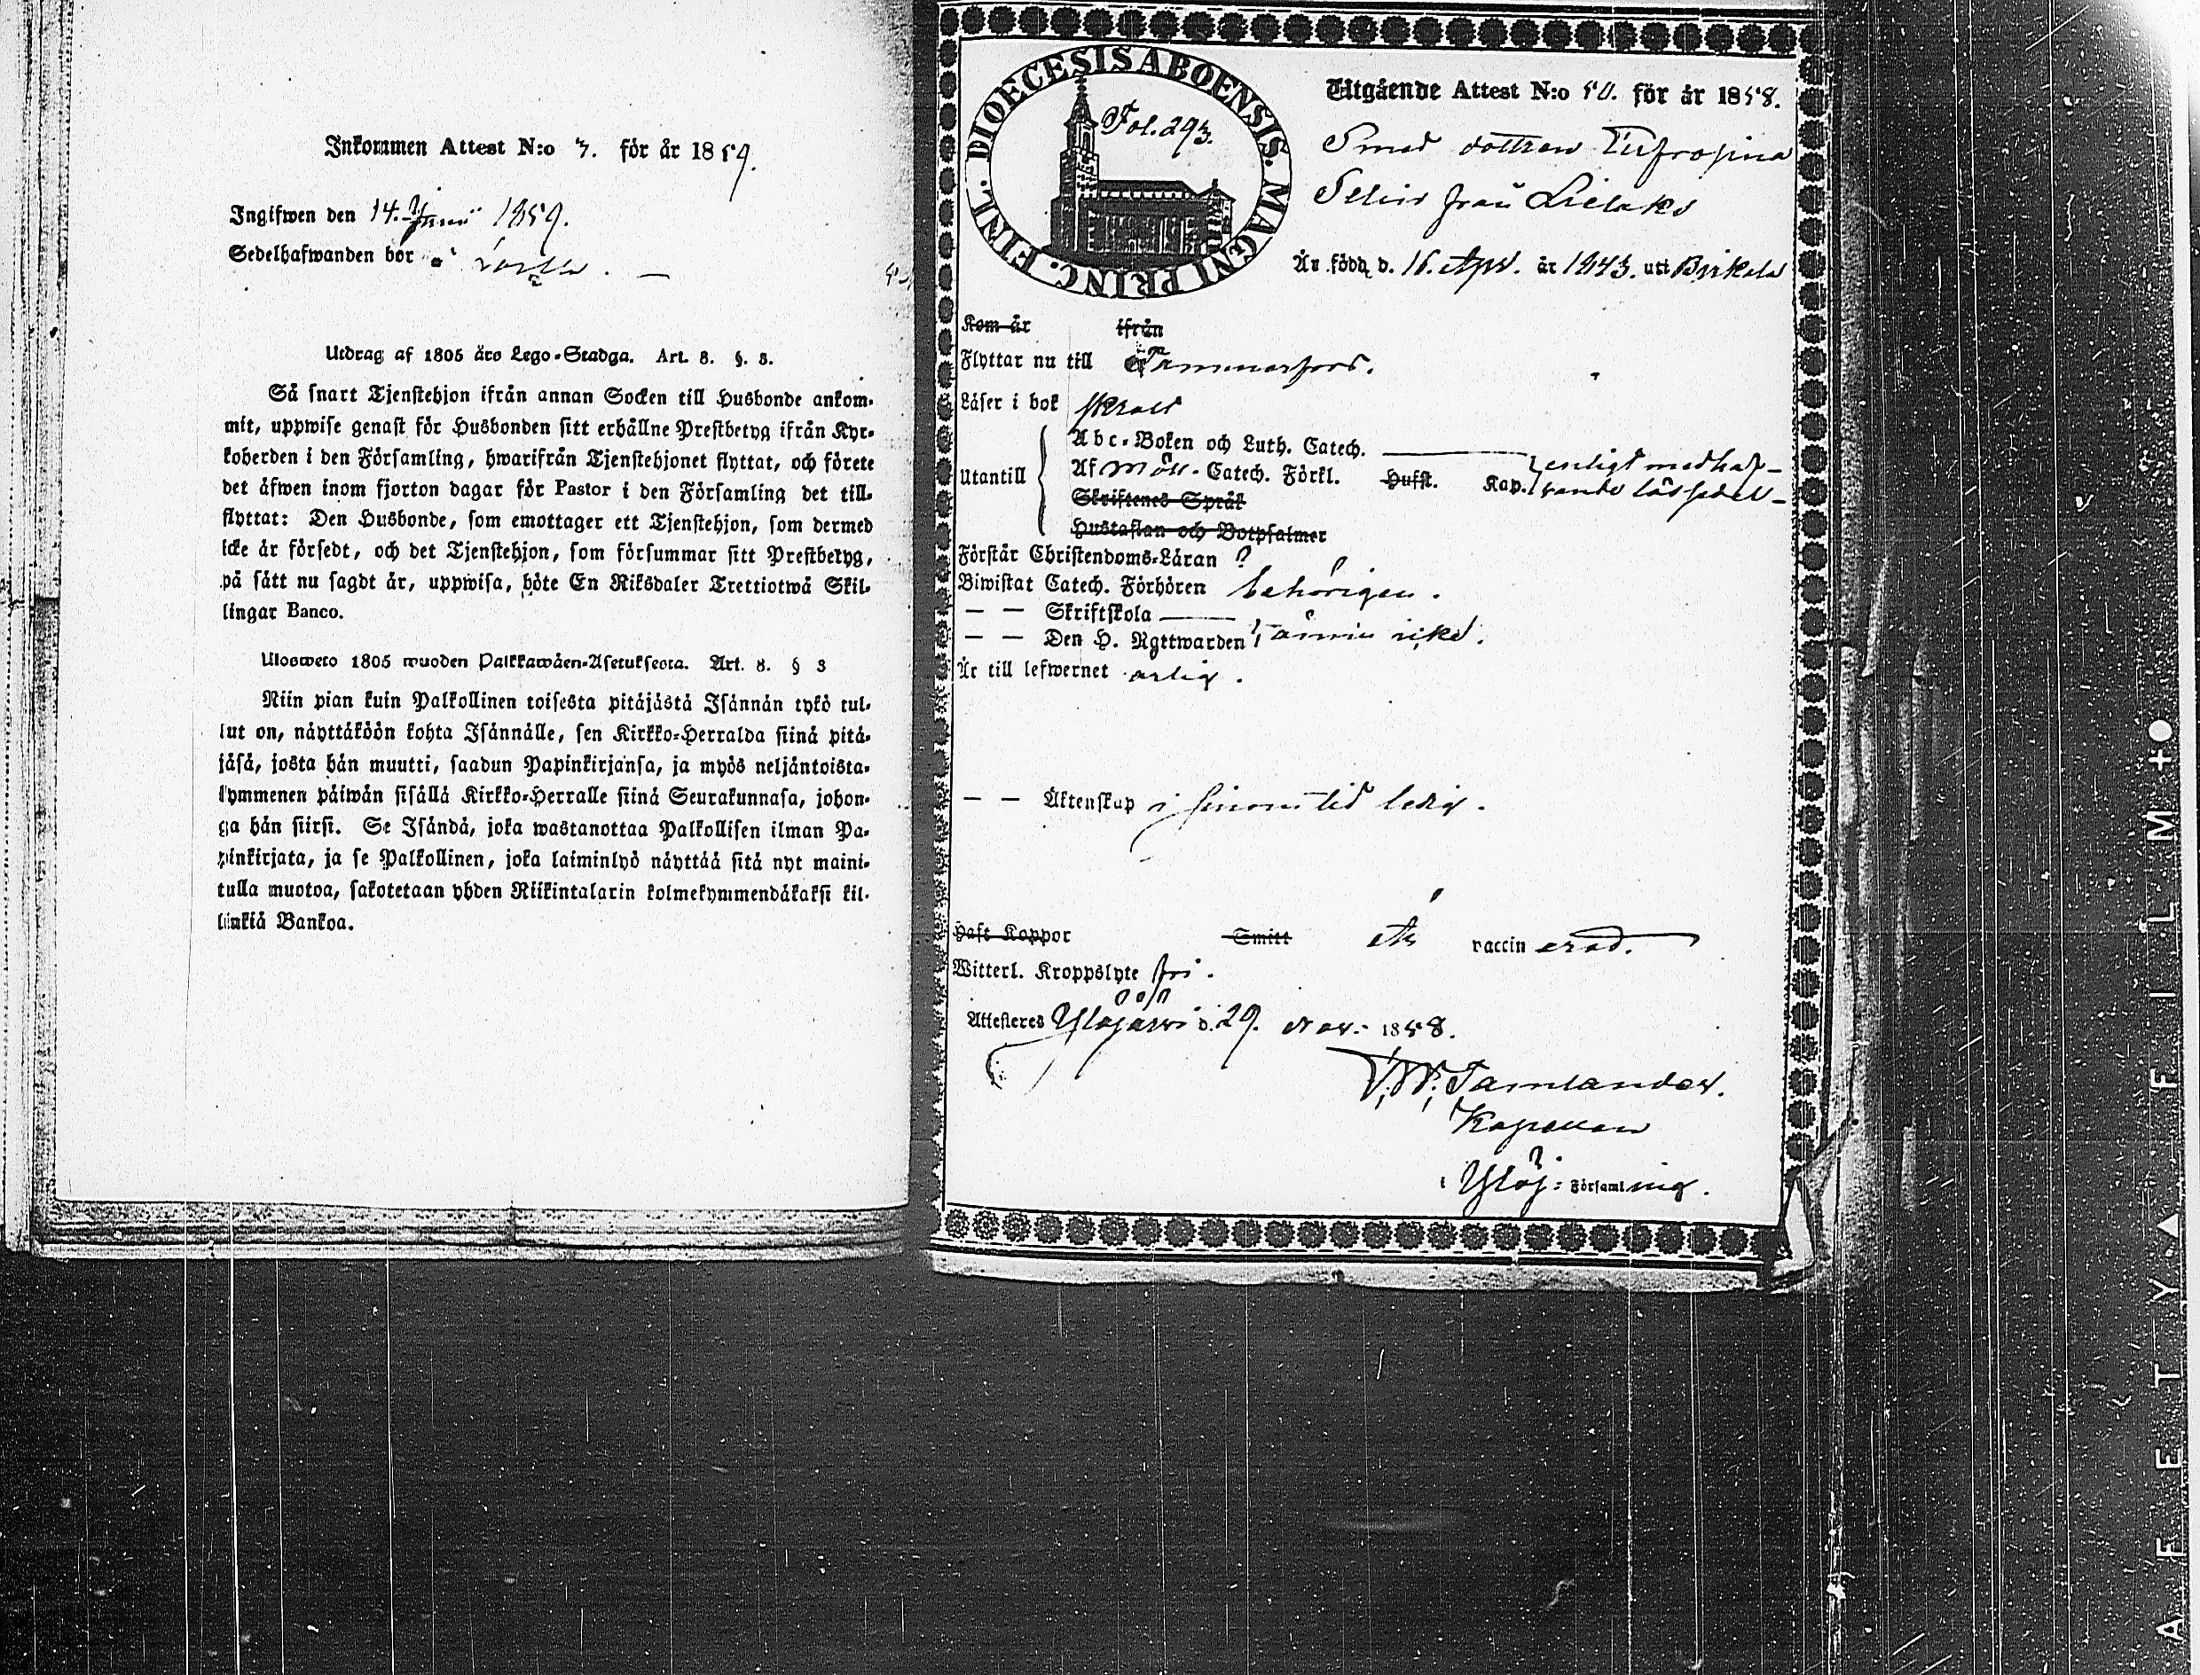 Inkommen Attest N:o 3. för år 1859.
Ingifwen den 14. Juni 1859.
Sedelhafwanden bor
Utdrag af 1805 års Lego-Stadga. Art. 8. §. 3.
Så snart Tjenstehjon ifrån annan Socken till Husbonde ankom-
mit, uppwise genast för Husbonden sitt erhållne Prestbetyg ifrån Kyr-
koherden i den Församling, hwarifrån Tjenstehjonet flyttat, och förete
det äfwen inom fjorton dagar för Pastor i den Församling det till-
flyttat: Den Husbonde, som emottager ett Tjenstehjon, som dermed
icke är försedt, och det Tjenstehjon, som försummar sitt Prestbetyg,
på sätt nu sagdt är, uppwisa, böte En Riksdaler Trettiotwå Skil-
lingar Banco.
Ulosweto 1805 wuoden Palkkawäen-Asetuksesta. Art. 8. § 3
Niin pian kuin Palkollinen toisesta pitäjästä Isännän tykö tul-
lut on, näyttäköön kohta Isännälle, sen Kirkko-Herralda siinä pitä-
jäsä, josta hän muutti, saadun Papinkirjansa, ja myös neljäntoista-
kymmenen päiwän sisällä Kirkko-Herralle siinä Seurakunnasa, johon-
ga hän siirsi. Se Isändä, joka wastanottaa Palkollisen ilman Pa-
pinkirjata, ja se Palkollinen, joka laiminlyö näyttää sitä nyt maini-
tulla muotoa, sakotetaan yhden Riikintalarin kolmekymmendäkaksi kil-
linkiä Bankoa.
DIOECESIS ABOENSIS. MAGNI PRINC. FINL.
Fol. 293.
Utgående Attest N:o 50. för år 1858.
Smed dottren Eufrosina
från
Är född d. 16. Apr. är 1843. uti Birkala
Kom år ifrån
Flyttar nu till Tammerfors.
Läser i bok
Utantill
Abc-Boken och Luth. Catech.
Af Möll. Catech. Förkl. Hufst. Kap. enligt medhaf-
vande läs sedel
Skriftenes Språk
Hustaflan och Botpsalmer
Förstår Christendoms-Läran ?
Biwistat Catech. Förhören behörigen.
— — Skriftskola
— — Den H. Nattwarden ännu icke.
Är till lefwernet ärlig.
— — Äktenskap i sinom tid ledig.
Haft Koppor Smitt Är vaccinerad.
Witterl. Kroppslyte fri.
Attesteres Ylöjärvi d. 29. Nov. 1858.
Kapellan
i Ylöj: Församlning.
SAFETY ▲ FILM